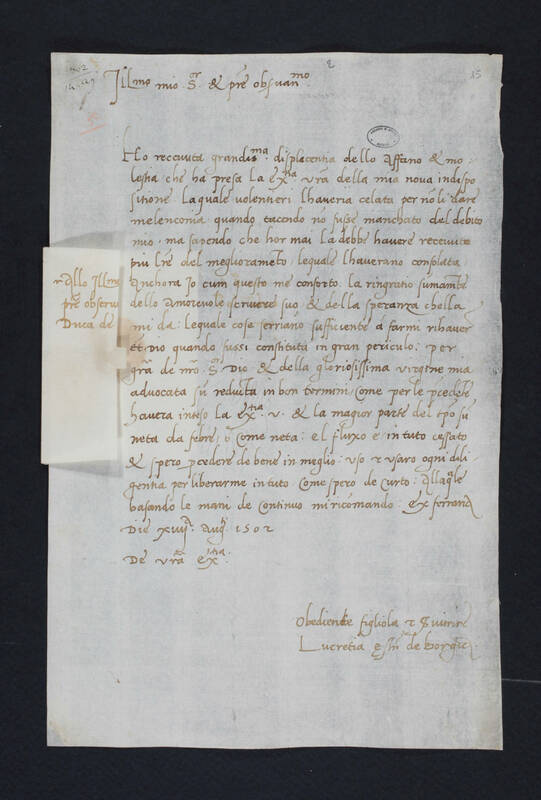 2
15
Illmo mio Sr & pre obsvanmo
Ho receiuta grandisma displacentia dello Affano & mo
lestia che ha presa la extia vra della mia noua indispo
sitione. Laquale volentieri lhaveria celata per nõ li dare
melenconia quando tacendo nõ fusse manchato del debito
mio. ma sapendo che hor mai la debbe havere receuute
piu lre del meglioramẽto, lequale lhaverano consolata
Anchora Io cum questo me conforto. la ringratio sumamẽte
dello Amorevole scrivere suo & della speranza chella
mi da: lequale cose seriano sufficiente a farmi rihaver
et Dio quando fussi constituta in gran periculo: per
gra de nro Sr Dio & della gloriosissima virgine mia
advocata sũ reducta in bon termini, come per le pcedẽte
havera inteso la extia v. & la magior parte del tpo sũ
neta da febre, o come neta: el fluxo e in tuto cessato
& spero pcedere de bene in meglio: uso & usaro ogni dili
gentia per liberarme in tuto come spero de curto: Allaqle
basando le mani de continuo mi ricomando: ex ferrara
Die Augti 1502
De vra extia
Obediente figliola &
Lucretia de borgia
Allo Illmo
pre observ
Duca de